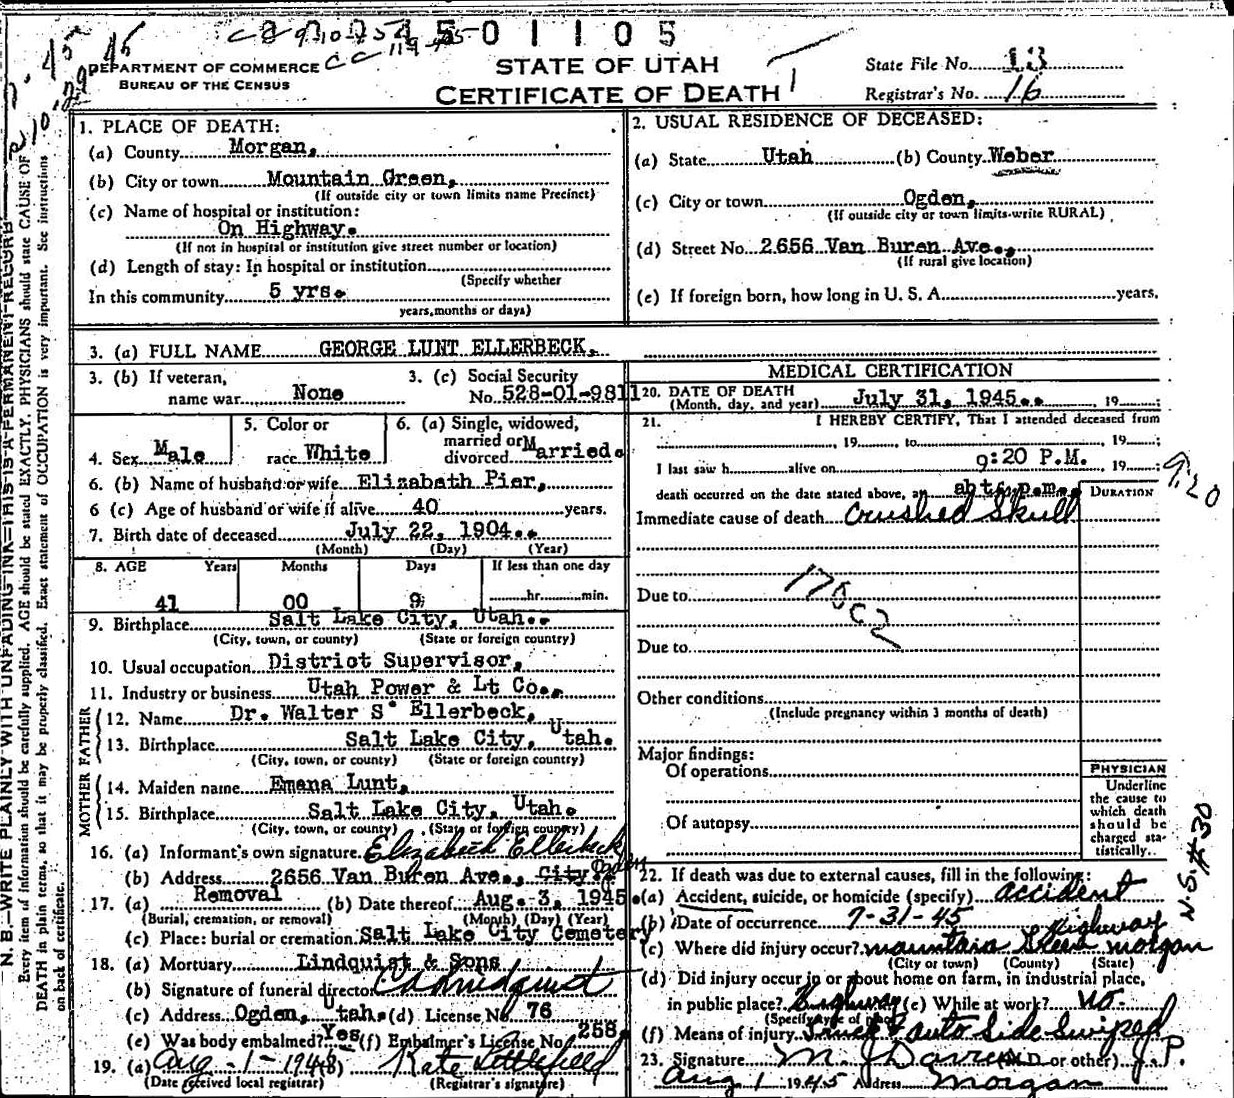 4501105
DEPARTMENT OF COMMERCE
BUREAU OF THE CENSUS
STATE OF UTAH
CERTIFICATE OF DEATH
State File No. 13
Registrar's No. 16
N. B.—WRITE PLAINLY WITH UNFADING INK—THIS IS A PERMANENT RECORD
Every item of information should be carefully supplied. AGE should be stated EXACTLY. PHYSICIANS should state CAUSE OF
DEATH in plain terms, so that it may be properly classified. Exact statement of OCCUPATION is very important. See instructions
on back of certificate.
1. PLACE OF DEATH:
(a) County Morgan,
(b) City or town Mountain Green,
(If outside city or town limits name Precinct)
(c) Name of hospital or institution:
On Highway.
(If not in hospital or institution give street number or location)
(d) Length of stay: In hospital or institution
(Specify whether
In this community 5 yrs.
years, months or days)
2. USUAL RESIDENCE OF DECEASED:
(a) State Utah (b) County Weber
(c) City or town Ogden,
(If outside city or town limits write RURAL)
(d) Street No. 2656 Van Buren Ave.,
(If rural give location)
(e) If foreign born, how long in U. S. A. years.
3. (a) FULL NAME GEORGE LUNT ELLERBECK,
3. (b) If veteran,
name war None
3. (c) Social Security
No. 528-01-9811
4. Sex Male
5. Color or
race White
6. (a) Single, widowed,
married or
divorced Married.
6. (b) Name of husband or wife Elizabeth Pier,
6 (c) Age of husband or wife if alive 40 years.
7. Birth date of deceased July 22, 1904..
(Month) (Day) (Year)
8. AGE Years Months Days If less than one day
41 00 9 hr. min.
9. Birthplace Salt Lake City, Utah..
(City, town, or county) (State or foreign country)
10. Usual occupation District Supervisor,
11. Industry or business Utah Power & Lt Co.,
FATHER
12. Name Dr. Walter S Ellerbeck,
13. Birthplace Salt Lake City, Utah.
(City, town, or county) (State or foreign country)
MOTHER
14. Maiden name Emena Lunt,
15. Birthplace Salt Lake City, Utah.
(City, town, or county) (State or foreign country)
16. (a) Informant's own signature Elizabeth Ellerbeck
(b) Address 2656 Van Buren Ave., City. Ogden
17. (a) Removal (b) Date thereof Aug. 3, 1945.
(Burial, cremation, or removal) (Month) (Day) (Year)
(c) Place: burial or cremation Salt Lake City Cemetery
18. (a) Mortuary Lindquist & Sons
(b) Signature of funeral director Lindquist
(c) Address Ogden, Utah. (d) License No. 76
(e) Was body embalmed? Yes (f) Embalmer's License No. 258.
19. (a) Aug - 1 - 194 Kate Littlefield
(Date received local registrar) (Registrar's signature)
MEDICAL CERTIFICATION
20. DATE OF DEATH
(Month, day, and year) July 31, 1945.. , 19 ;
21. I HEREBY CERTIFY, That I attended deceased from
, 19 to , 19 ;
9:20 P.M.
I last saw h alive on , 19 ; 9:20
death occurred on the date stated above, at abt p.m. DURATION
Immediate cause of death Crushed Skull
Due to
170c2
Due to
Other conditions
(Include pregnancy within 3 months of death)
Major findings:
Of operations
Of autopsy
PHYSICIAN
Underline
the cause to
which death
should be
charged sta-
tistically.
22. If death was due to external causes, fill in the following:
(a) Accident, suicide, or homicide (specify) accident
(b) Date of occurrence 7-31-45
Highway
(c) Where did injury occur? mountain Green morgan
(City or town) (County) (State)
(d) Did injury occur in or about home on farm, in industrial place,
in public place? Highway (e) While at work? no.
(Specify type of place)
(f) Means of injury Truck & auto Side Swiped
23. Signature (M.D. or other) J.P.
Aug 1 1945 Address Morgan
N.S.#-30